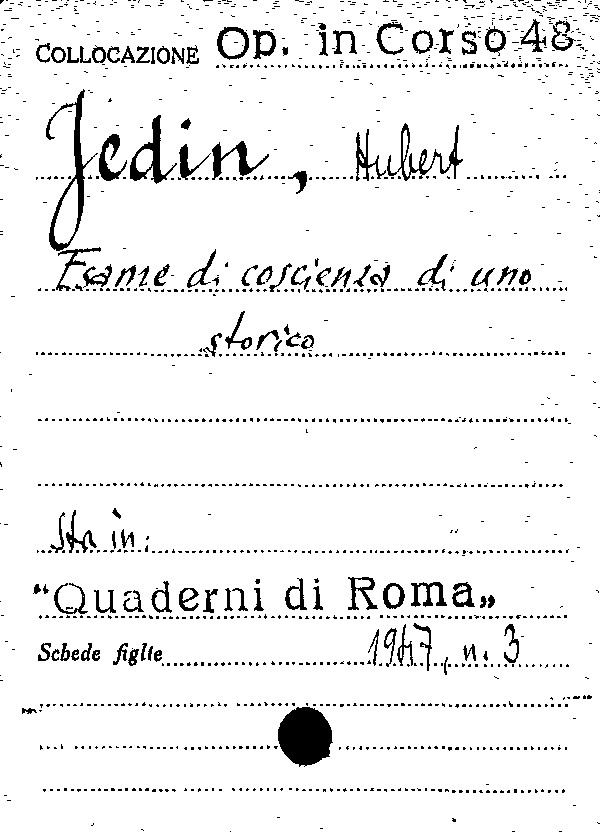 COLLOCAZIONE Op. in Corso 48
Jedin, Hubert
Esame di coscienza di uno
storico
Sta in:
"Quaderni di Roma„
Schede figlie 1947, n. 3